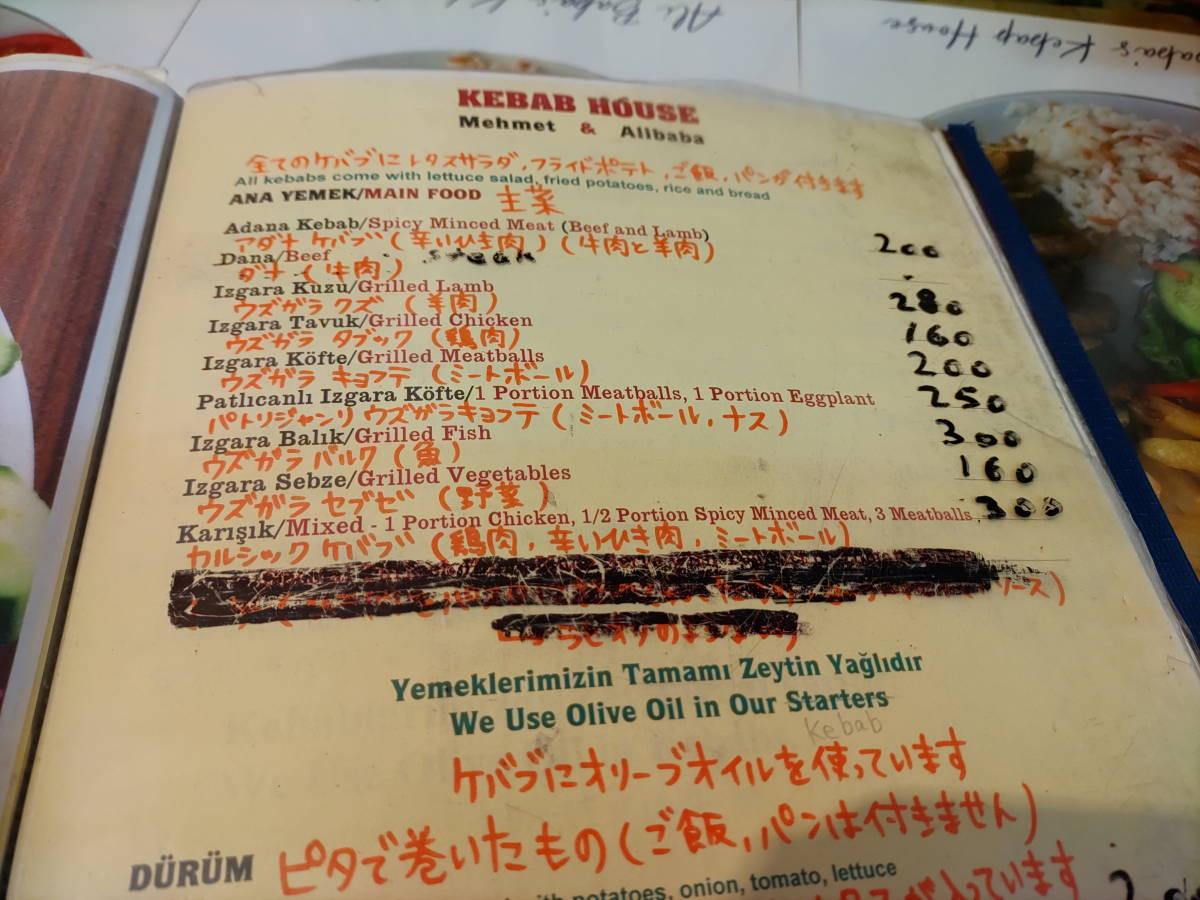 Ali Baba's
baba's Kebap House
KEBAB HOUSE
Mehmet & Alibaba
全てのケバブにレタスサラダ,フライドポテト,ご飯,パンが付きます
All kebabs come with lettuce salad, fried potatoes, rice and bread
ANA YEMEK/MAIN FOOD 主菜
Adana Kebab/Spicy Minced Meat (Beef and Lamb) 200
アダナ ケバブ (辛いひき肉) (牛肉と羊肉)
Dana/Beef steak
ダナ (牛肉)
Izgara Kuzu/Grilled Lamb 280
ウズガラ クズ (羊肉)
Izgara Tavuk/Grilled Chicken 160
ウズガラ タブック (鶏肉)
Izgara Köfte/Grilled Meatballs 200
ウズガラ キョフテ (ミートボール)
Patlıcanlı Izgara Köfte/1 Portion Meatballs, 1 Portion Eggplant 250
パトリジャンリ ウズガラキョフテ (ミートボール,ナス)
Izgara Balık/Grilled Fish 300
ウズガラ バルク (魚)
Izgara Sebze/Grilled Vegetables 160
ウズガラ セブゼ (野菜)
Karışık/Mixed - 1 Portion Chicken, 1/2 Portion Spicy Minced Meat, 3 Meatballs 300
カルシック ケバブ (鶏肉,辛いひき肉,ミートボール)
ソース)
Yemeklerimizin Tamamı Zeytin Yağlıdır
We Use Olive Oil in Our Starters
Kebab
ケバブにオリーブオイルを使っています
DÜRÜM ピタで巻いたもの(ご飯,パンは付きません)
with potatoes, onion, tomato, lettuce
が入っています